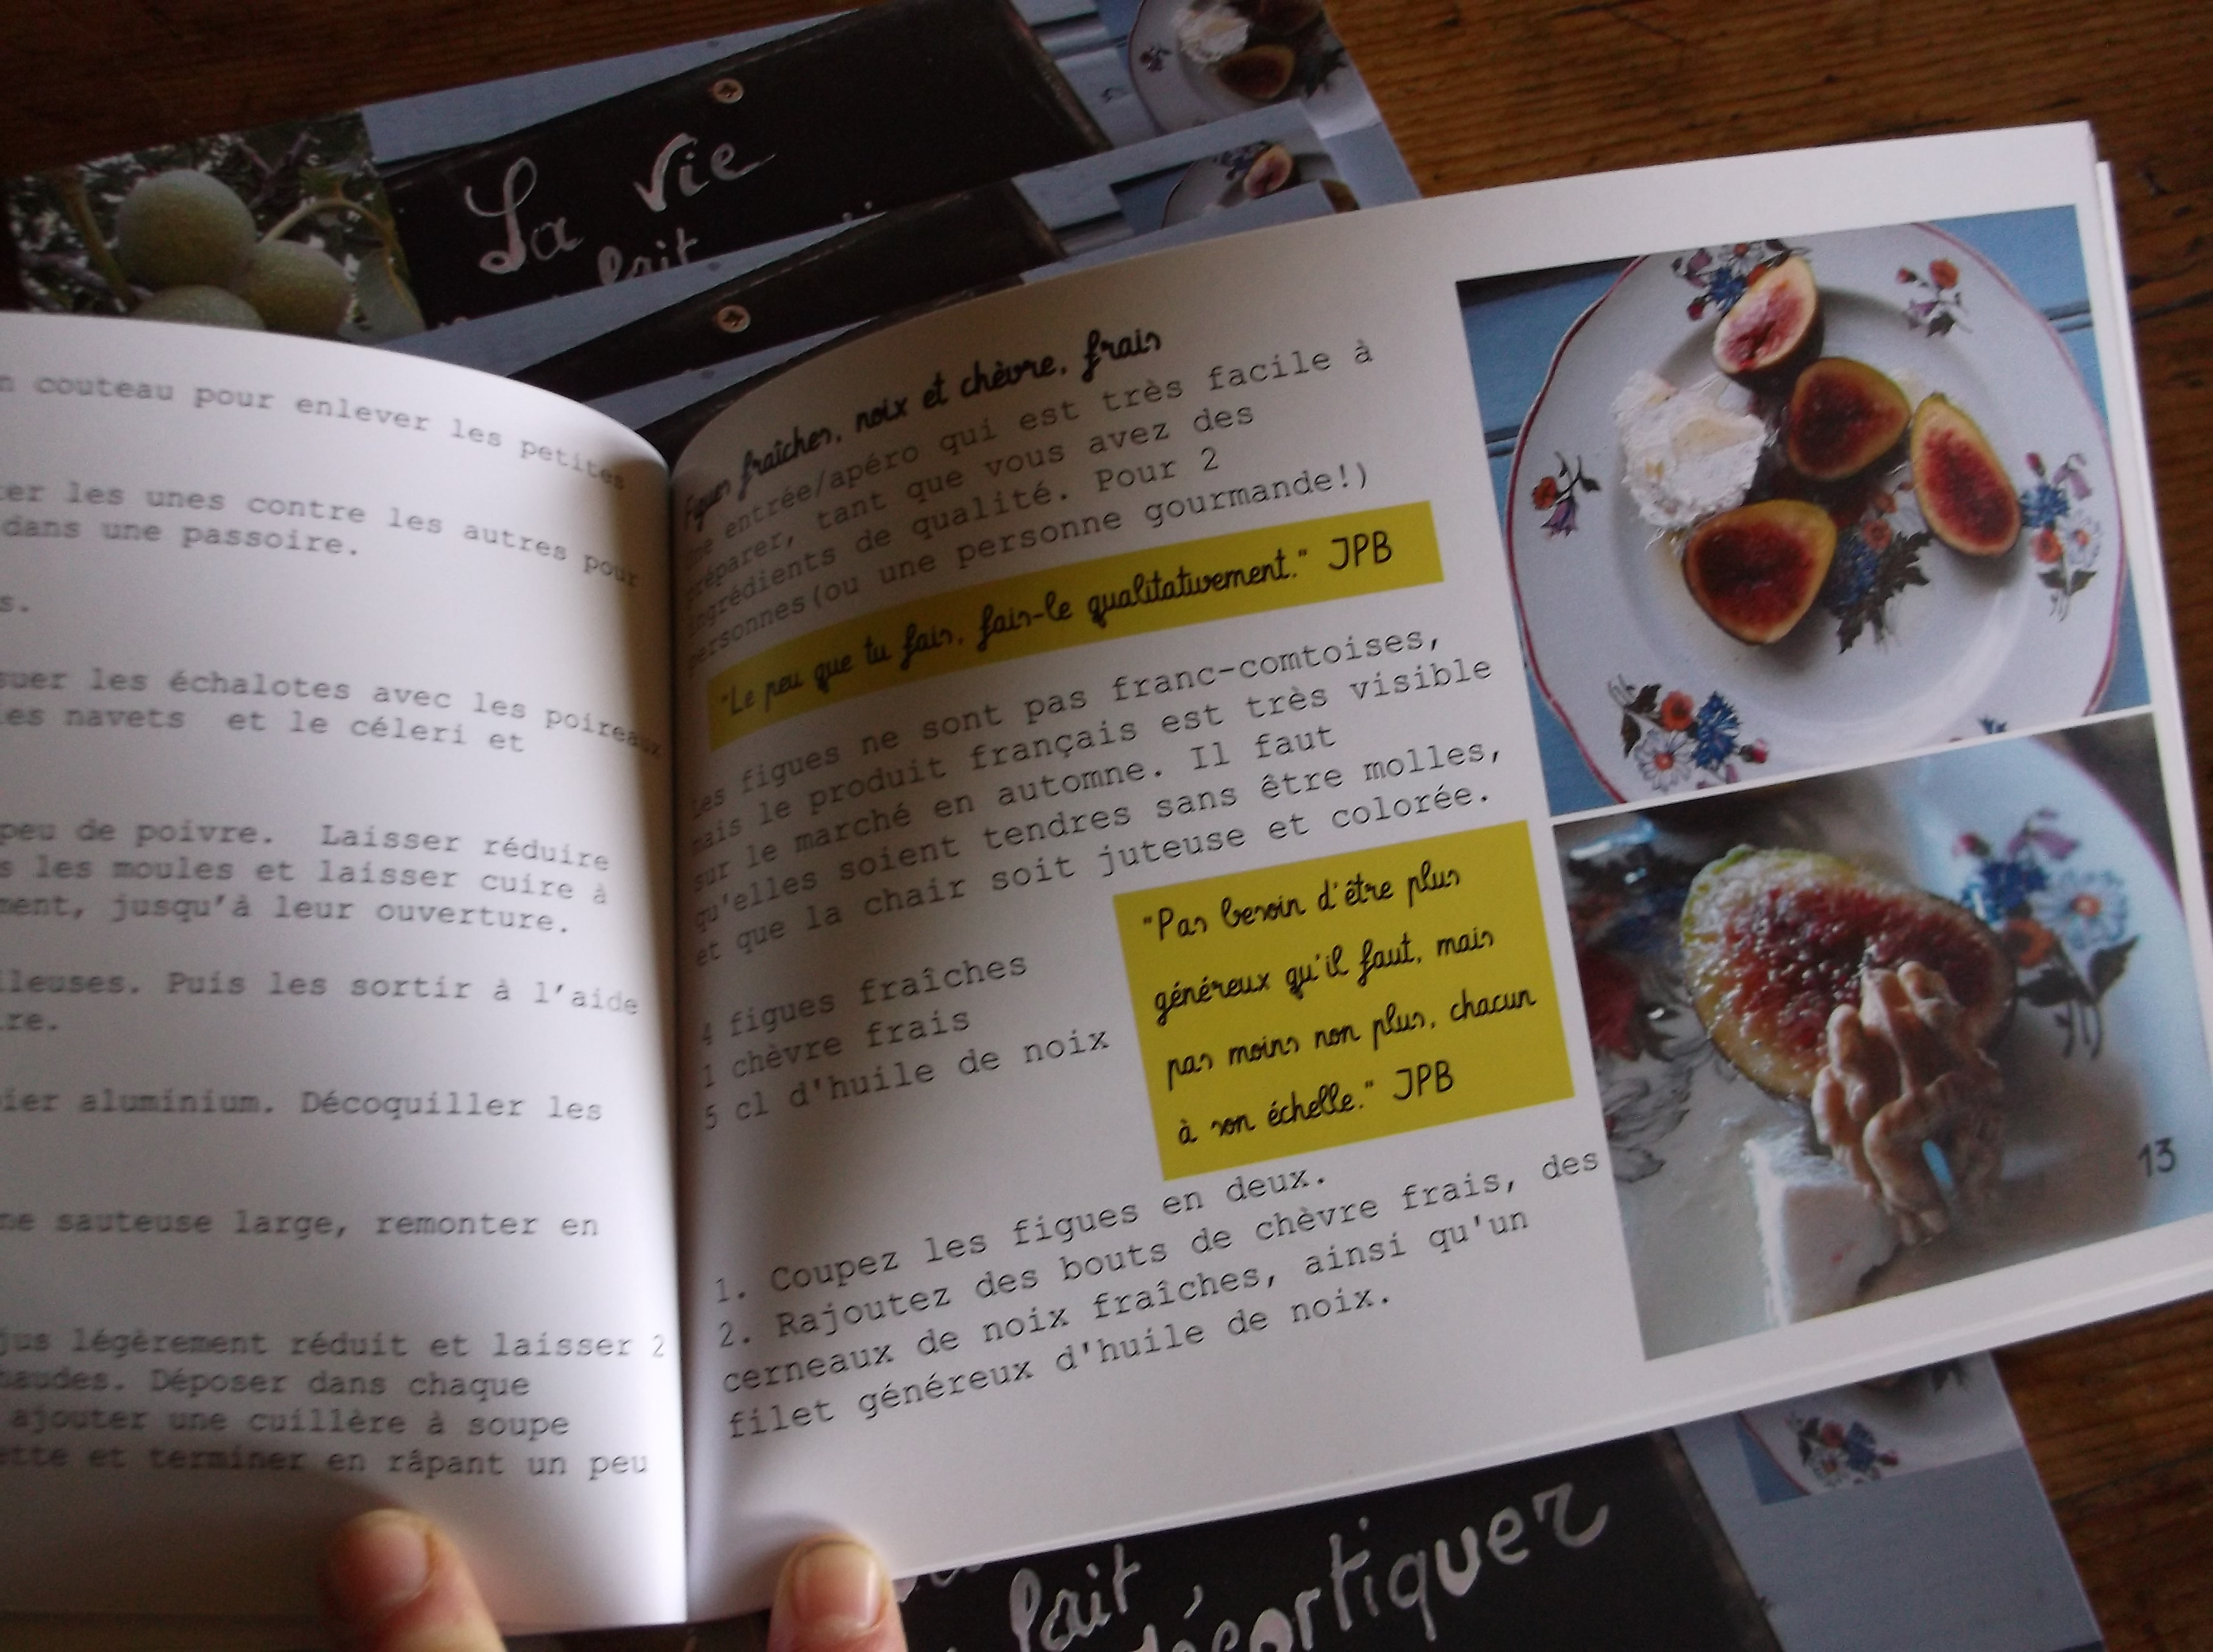 La vie
fait
n couteau pour enlever les petites
er les unes contre les autres pour
dans une passoire.
s.
suer les échalotes avec les poireaux
es navets et le céleri et
peu de poivre. Laisser réduire
s les moules et laisser cuire à
ment, jusqu'à leur ouverture.
lleuses. Puis les sortir à l'aide
re.
ier aluminium. Décoquiller les
ne sauteuse large, remonter en
jus légèrement réduit et laisser 2
haudes. Déposer dans chaque
ajouter une cuillère à soupe
ette et terminer en râpant un peu
Figues fraîches, noix et chèvre, frais
Une entrée/apéro qui est très facile à
préparer, tant que vous avez des
ingrédients de qualité. Pour 2
personnes(ou une personne gourmande!)
"Le peu que tu fais, fais-le qualitativement." JPB
Les figues ne sont pas franc-comtoises,
mais le produit français est très visible
sur le marché en automne. Il faut
qu'elles soient tendres sans être molles,
et que la chair soit juteuse et colorée.
4 figues fraîches
1 chèvre frais
5 cl d'huile de noix
"Pas besoin d'être plus
généreux qu'il faut, mais
pas moins non plus, chacun
à son échelle." JPB
1. Coupez les figues en deux.
2. Rajoutez des bouts de chèvre frais, des
cerneaux de noix fraîches, ainsi qu'un
filet généreux d'huile de noix.
13
fait,
décortiquer